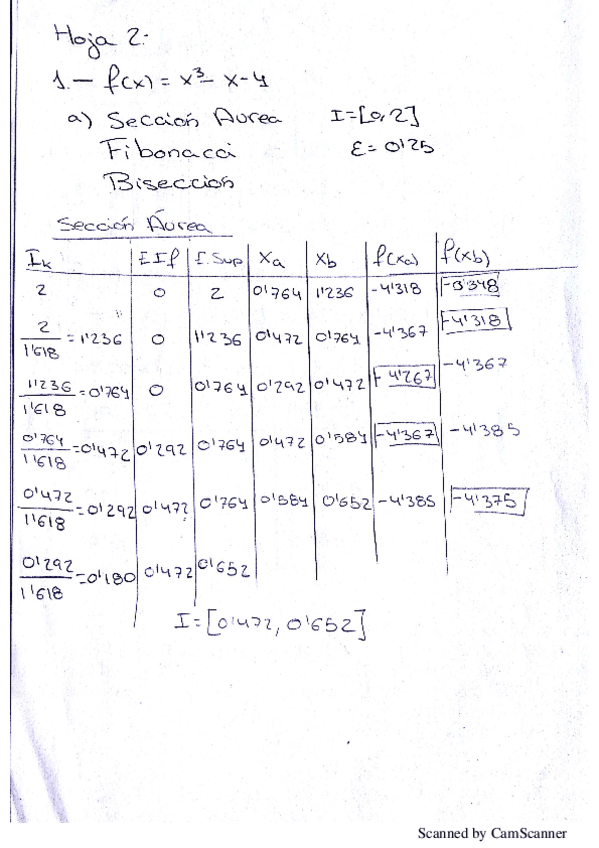 Hoja 2:
1.- f(x) = x³- x-4
a) Sección Áurea I=[0,2]
Fibonacci ε= 0'25
Bisección
Sección Áurea
Ik I.If I.Sup Xa Xb f(xa) f(xb)
2 0 2 0'764 1'236 -4'318 -3'348
2/1'618 =1'236 0 1'236 0'472 0'764 -4'367 -4'318
1'236/1'618 =0'764 0 0'764 0'292 0'472 -4'267 -4'367
0'764/1'618 =0'472 0'292 0'764 0'472 0'584 -4'367 -4'385
0'472/1'618 =0'292 0'472 0'764 0'584 0'652 -4'385 -4'375
0'292/1'618 =0'180 0'472 0'652
I=[0'472, 0'652]
Scanned by CamScanner